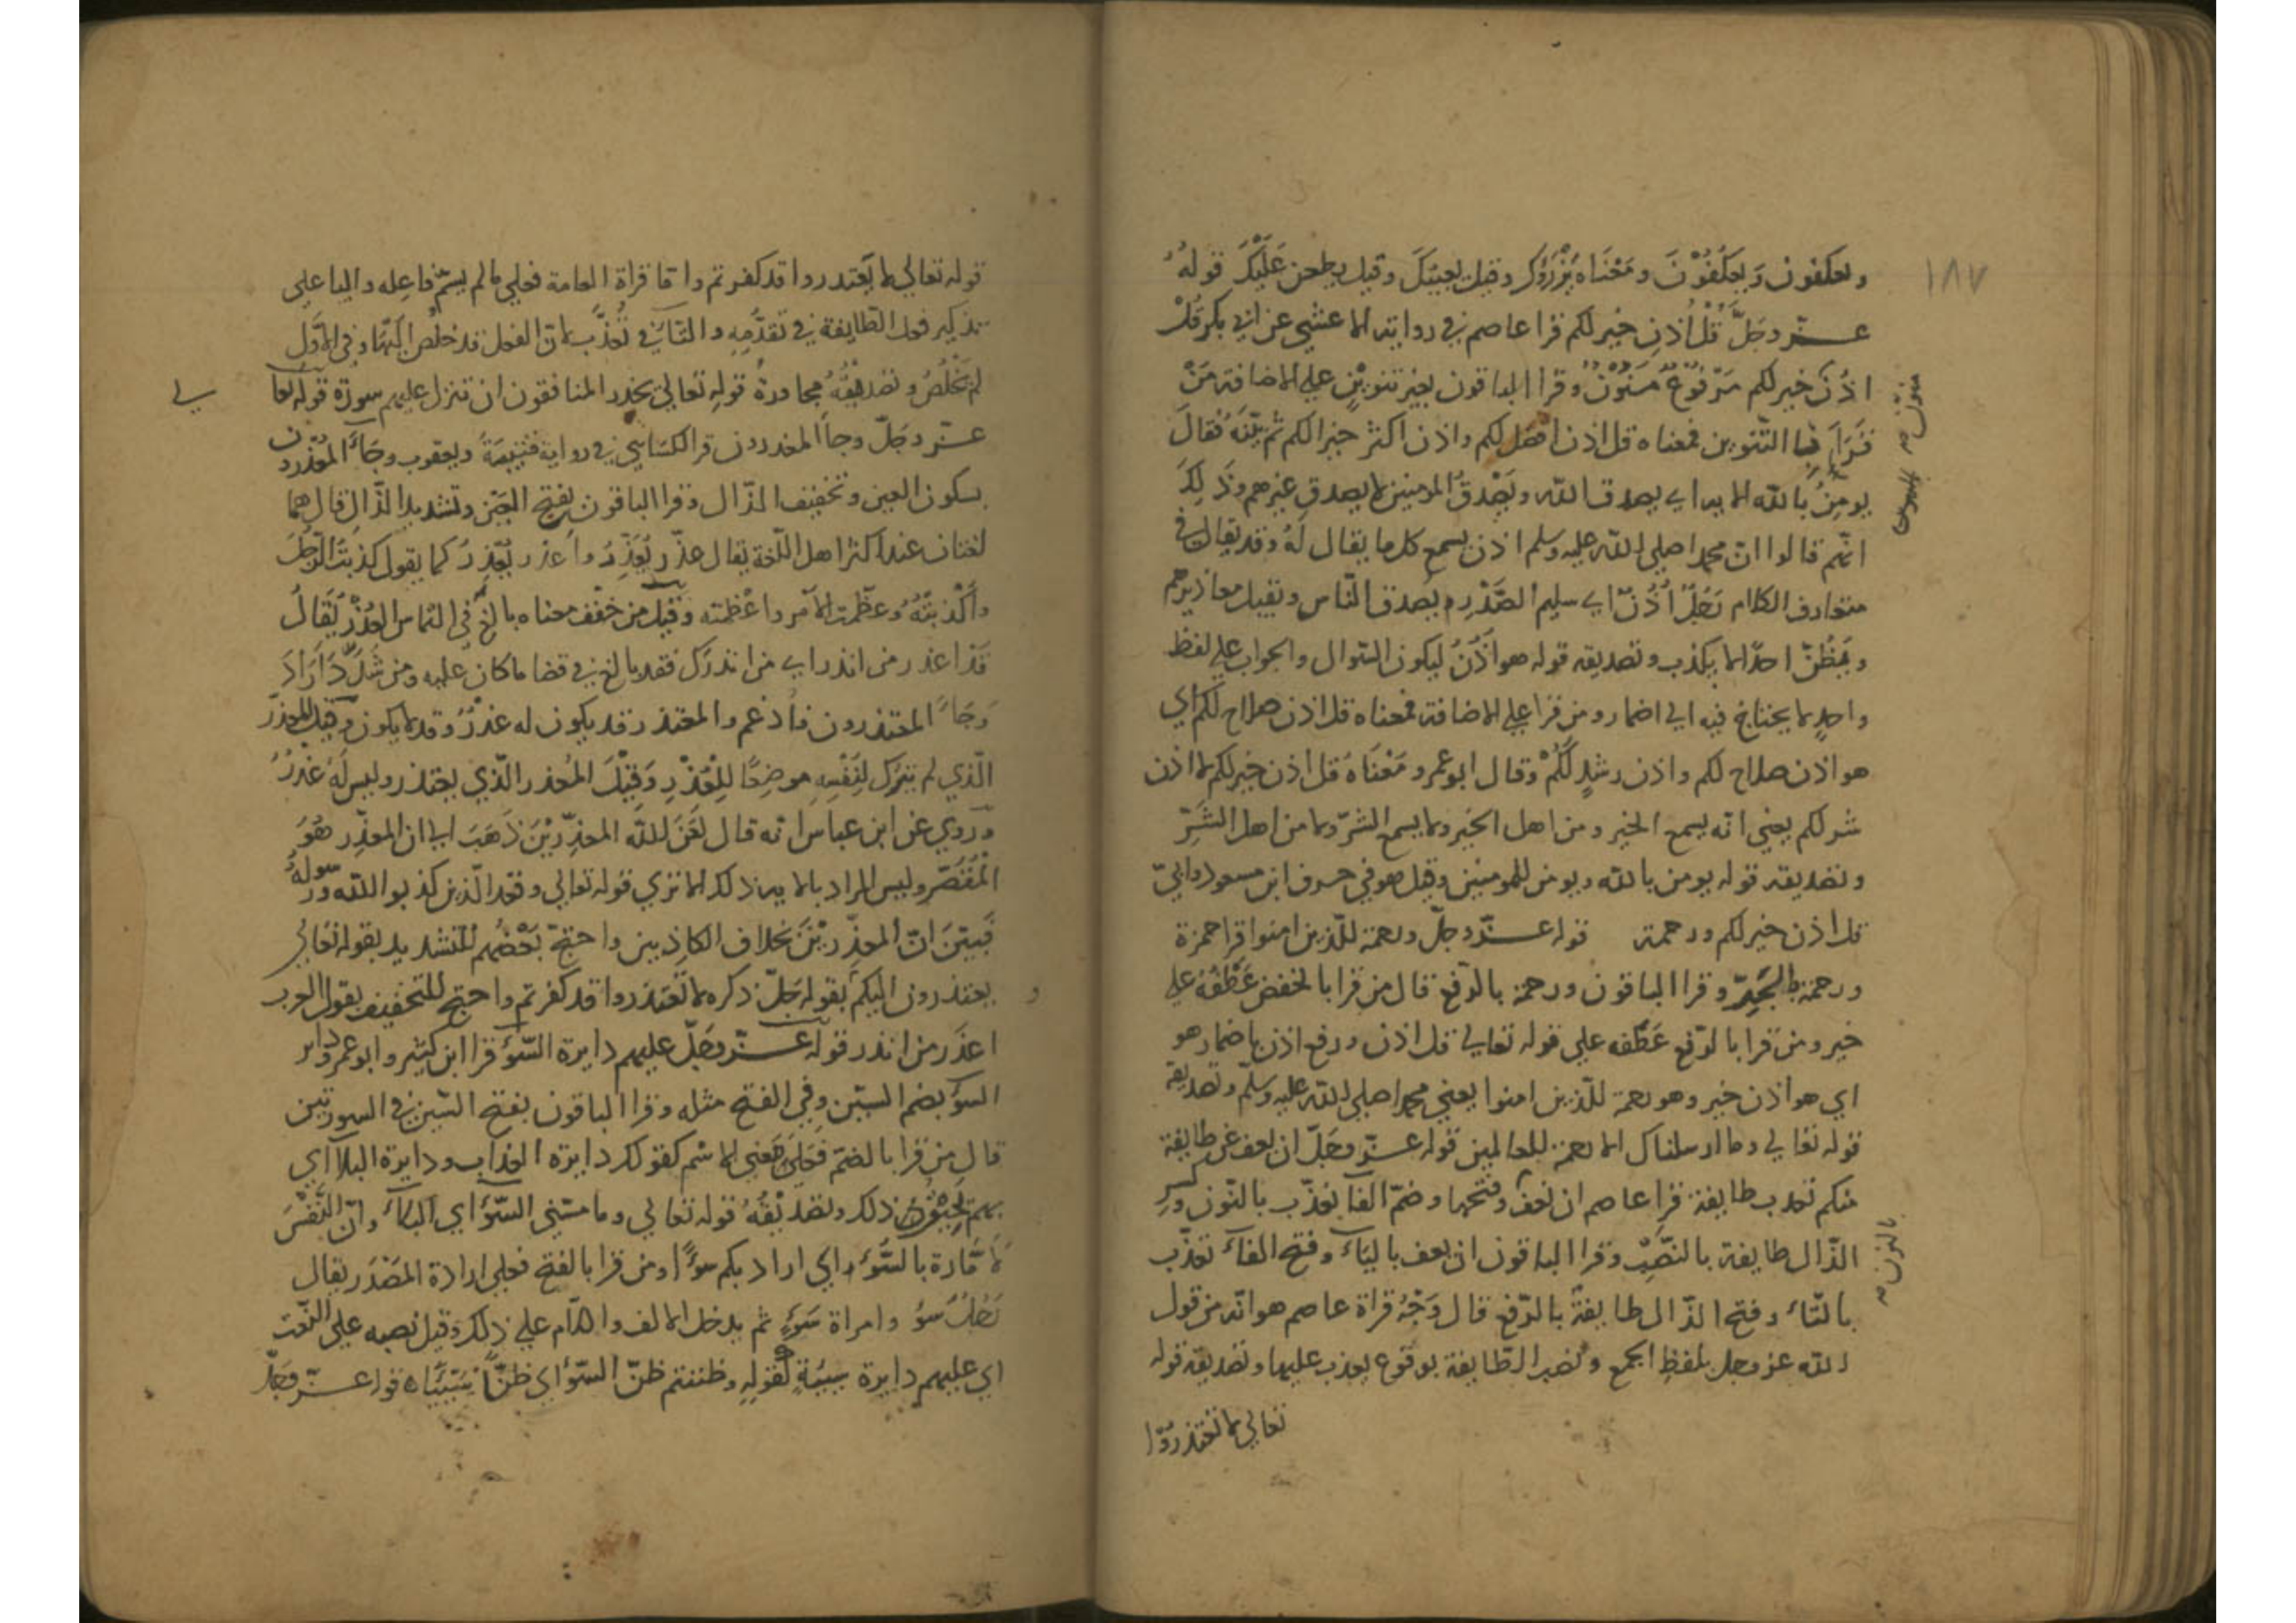 ١٨٧
ويعكفون وَيعكُفُوْنَ ومَعْنَاه يَزْرَؤُك وقيل يعيبَكَ وقيل يطعن عَلَيْكَ قولهُ
عــز وجَلَّ قُلْ أُذن خير لكم قرا عاصم في رواية الاعشي عن ابي بكر قُلْ
اذُنٌ خير لكم مَرْفوْعٌ مُنَوَّنٌ وقرا الباقون بغير تنويْنٍ علي الاضافة مَنْ
قَرَاَ بالتّنوين فمعناه قل اذن افضل لكم واذن اكثر خيرا لكم ثم بيّنَهُ فقالَ
يومِنُ بالله الاية اي يصدق الله ويَصْدقُ المومنين لا يصدق غيرهم وذَلِكَ
انهّم قالوا انّ محمدا صلي الله عليه وسلم اذن يسمع كل ما يقال لهُ وقد يقال في
متعارف الكلام رَجُلٌ اُذُنٌ اي سليم الصَّدْرِ يصدق النّاس ويقبل معاذيرهم
ويَظُنّ احدًا لا يكذب وتصديقه قوله هو اُذُنٌ ليكون السّوال والجواب علي لفظ
واحدٍ لا يحتاج فيه الي اضمار ومن قرا علي الاضافة فمعناه قل اذن صلاح لكم اي
هو اذن صلاح لكم واذن رشدٍ لكُمْ وقال ابو عمرو مَعْنَاهُ قل اذن خير لكم لا اذن
شر لكم يعني انه يسمع الخير ومن اهل الخير ولا يسمع الشرّ ولا من اهل الشَرِّ
وتصديقه قوله يومن بالله ويومن للمومنين وقيل هو في حرف ابن مسعود وابيّ
قل اذن خير لكم ورحمة قوله عــزّ وجلّ ورحمة للّذين امنوا قرا حمزة
ورحمة بالجَرِّ وقرا الباقون ورحمة بالرّفع قال من قرا بالخفض عَطْفهُ علي
خير ومن قرا بالرّفع عَطفه علي قوله تعالي قل اذن ورفع اذن باضمار هو
اي هو اذن خير وهو رحمة للّذين امنوا يعني محمدا صلي الله عليه وسلّم وتصديقه
قوله تعالي وما ارسلناك الا رحمة للعالمين قوله عــزّ وجَلّ ان يعف عن طايفة
منكم تعذب طايفة قرا عاصم ان نعف وفتحها وضمّ الفا نعذّب بالنّون وكسرِ
الذّال طايفة بالنّصْبِ وقرا الباقون ان يعف باليَاء وفتح الفاء تعذّب
بالتّاء وفتح الذّال طايفةٌ بالرّفع قال وَجْهُ قراة عاصم هو انّه من قول
الله عز وجل بلفظِ الجمع ونصب الطّايفة بوقوع يعذب عليها وتصديقه قوله
تعالي لا تَعْتذرُوا
منوّن صح
بالنون صح
قوله تعالي لا يَعتذروا قد كفرتم وامّا قراة العامة فعلي ما لم يسمّ فاعِله واليا علي
تذكير فعل الطّايفة في تقدّمِهِ والتاء في تُعذّب لانّ الفعل قد خلُص اليّها وفي الاوَّلِ
لم يَخْلُصْ وتصديقُهُ مجاورة قوله تعالي يحذر المنافقون ان تنزل عليهم سورة قوله تعا
لي
عــز وجَلّ وجا المعذرون قرا الكسَايي في رواية قتيبَةَ ويعقوب وجَاءَ المعْذرون
بسكون العين وتخفيف الذّال وقرا الباقون بفتح العَيْن وتشديد الذّال قال هما
لغتان عند اكثر اهل اللّغة يقال عذّر يُعَذِّرُ واعذر يُعْذِرُ كما يقول كذبتُ الرّجُلَ
وأكْذبتُهُ وعظّمت الامر واعْظمته وقيل من خفّف معناه بالغ في التماس العُذْرِ يُقَالُ
قَدْ اعذر من انذر اي من انذرك فقد بالغ في قضا ما كان عليه ومن شدَّدَ ارَادَ
وَجَاءَ المعتذرون فاُدغم والمعتذر قد يكون له عُذْرٌ وقد لا يكون وقيل المعذر
الّذي لم يترُك لنَفْسِهِ موضِعًا لِلْعُذْرِ وَقِيْلَ المُعذر الّذي يعتذر وليس لَهُ عُذرٌ
ورُوي عن ابن عباس انه قال لعَنَ الله المعذِّرِيْنَ ذَهَبَ الي ان المعذّر هُوَ
الْمُقَصّر وليس المراد بالاية ذلك الا تري قوله تعالي وقعد الّذين كذبو الله ورسولهُ
فَبيّنَ انّ المعذّريْنَ بخلاف الكاذبين واحتجّ بَعْضُهُم للتشديد بقوله تعالي
يعتذرون اليكمْ بقوله جَلّ ذكره لا تَعتذروا قد كفرتم واحتج للتخفيف بقول العرب
اعذَر من انذر قوله عــزّ وجَلّ عليهم دايرة السّوء قرا ابن كثير وابو عمرو دايرة
السوء بضم السّين وفي الفتح مثله وقرا الباقون بفتح السّين في السورتين
قال من قرا بالضّم فعَلي مَعني الاسم كقولك دايرة العذاب ودايرة البلاء اي
بهم ذلك وتصديْقُهُ قوله تعالي وما مسّني السّوء اي البَلاءُ وانّ النّفْسَ
لامَّارة بالسّوء واي اراد بكم سُوءًا ومن قرا بالفتح فعلي ارادة المَصْدَر يقال
رَجُلُ سَوء وامراة سَوءٍ ثم يدخل الالف واللّام علي ذلك وقيل نصبه علي النّعت
اي عليهم دايرة سيئةٍ لقولِهِ وظننتم ظنّ السّوء اي ظنًّا سيّئًا ه قوله عــزّ وجَلّ